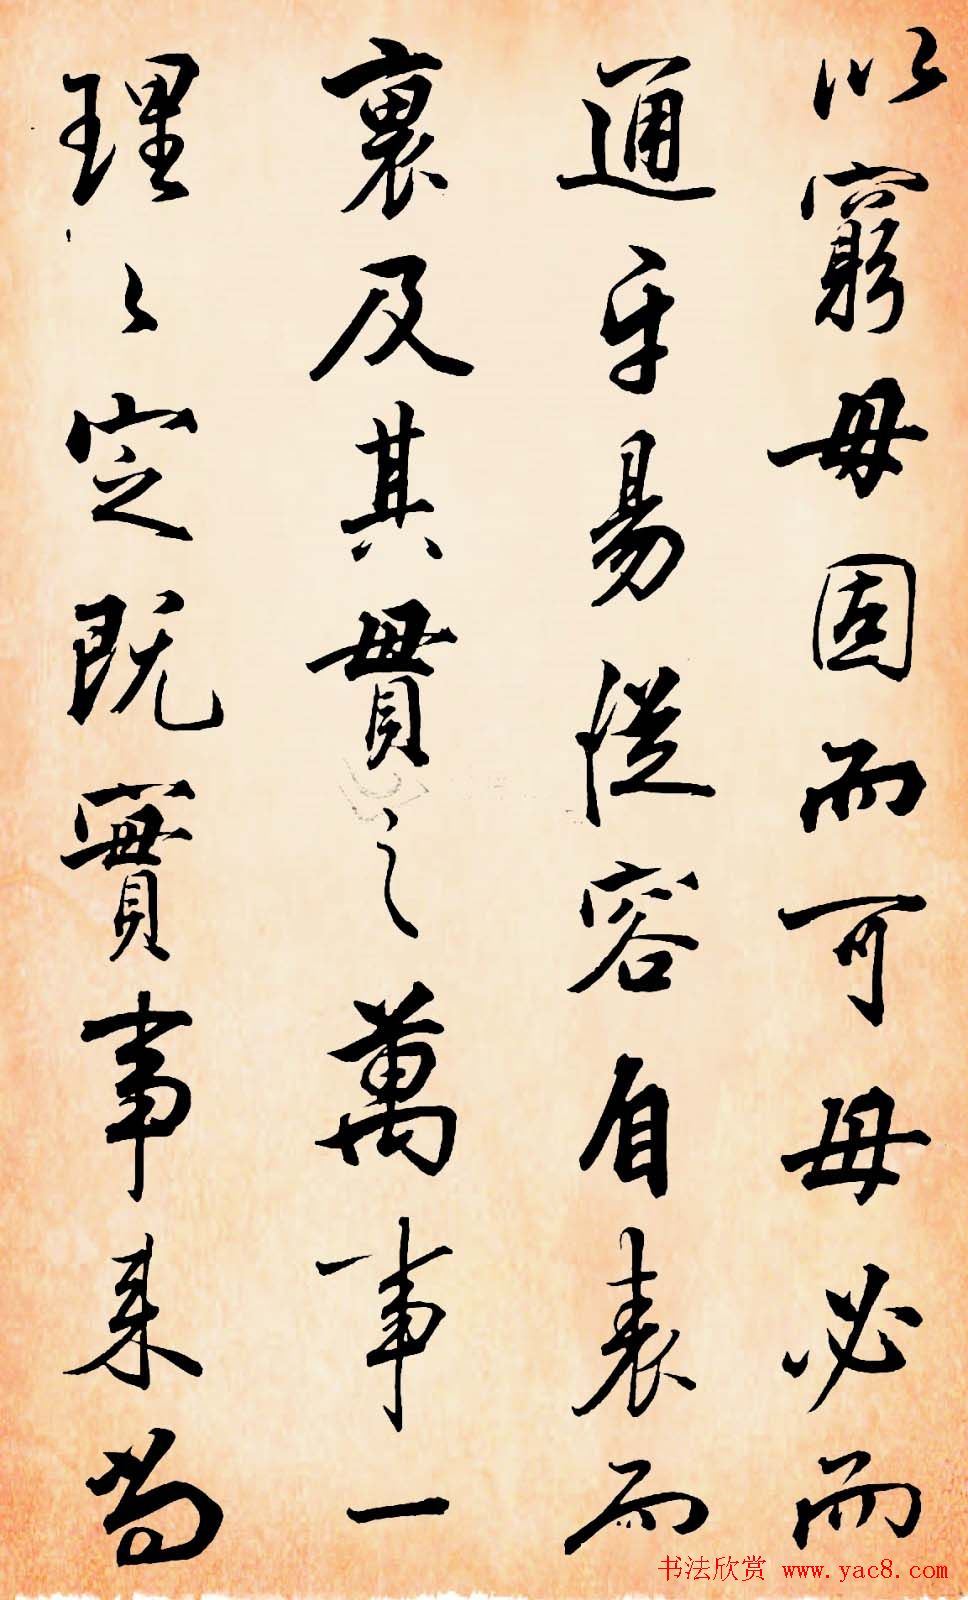 以窮毋固而可毋必而
通平易從容自表而
裏及其貫之萬事一
理々定既實事来尚
书法欣赏 www.yac8.com